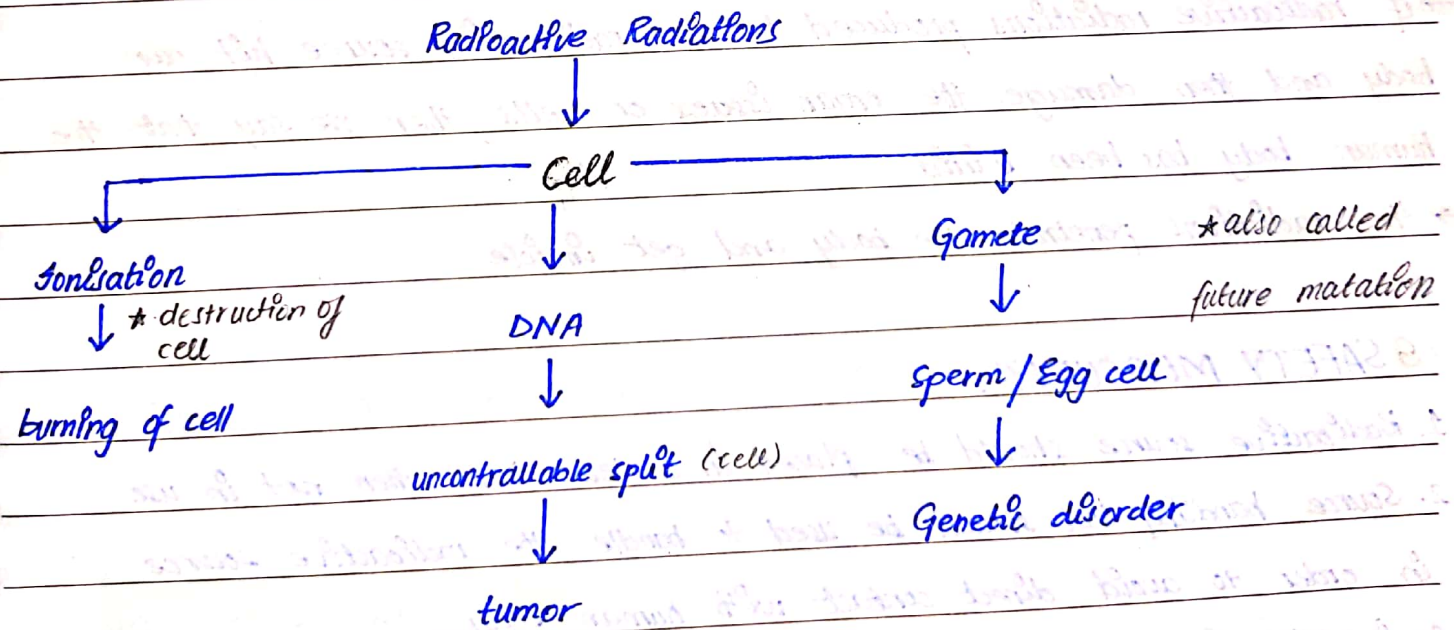 Radioactive Radiations
Cell
Ionisation
* destruction of
cell
burning of cell
DNA
uncontrallable split (cell)
tumor
Gamete
* also called
future matation
Sperm / Egg cell
Genetic disorder